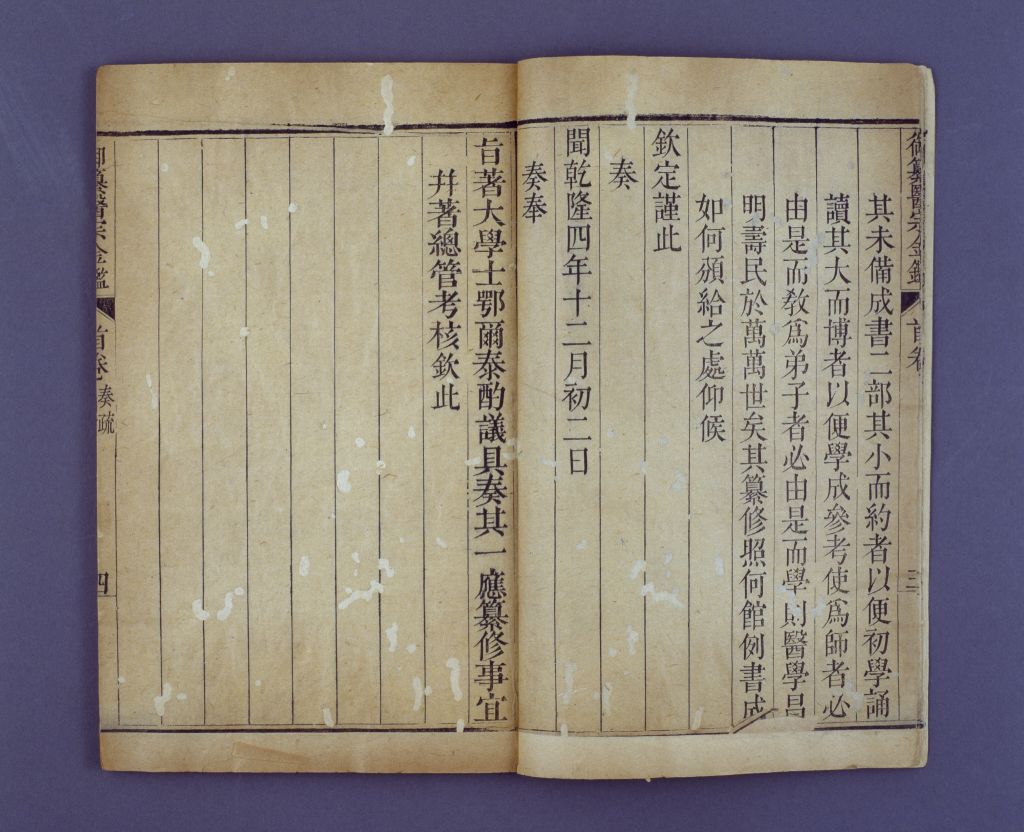 御纂醫宗金鑑
首卷
三
其未備成書二部其小而約者以便初學誦
讀其大而博者以便學成參考使為師者必
由是而教為弟子者必由是而學則醫學昌
明壽民於萬萬世矣其纂修照何館例書成
如何頒給之處仰候
欽定謹此
奏
聞乾隆四年十二月初二日
奏奉
旨著大學士鄂爾泰酌議具奏其一應纂修事宜
幷著總管考核欽此
御纂醫宗金鑑
首卷 奏疏
四